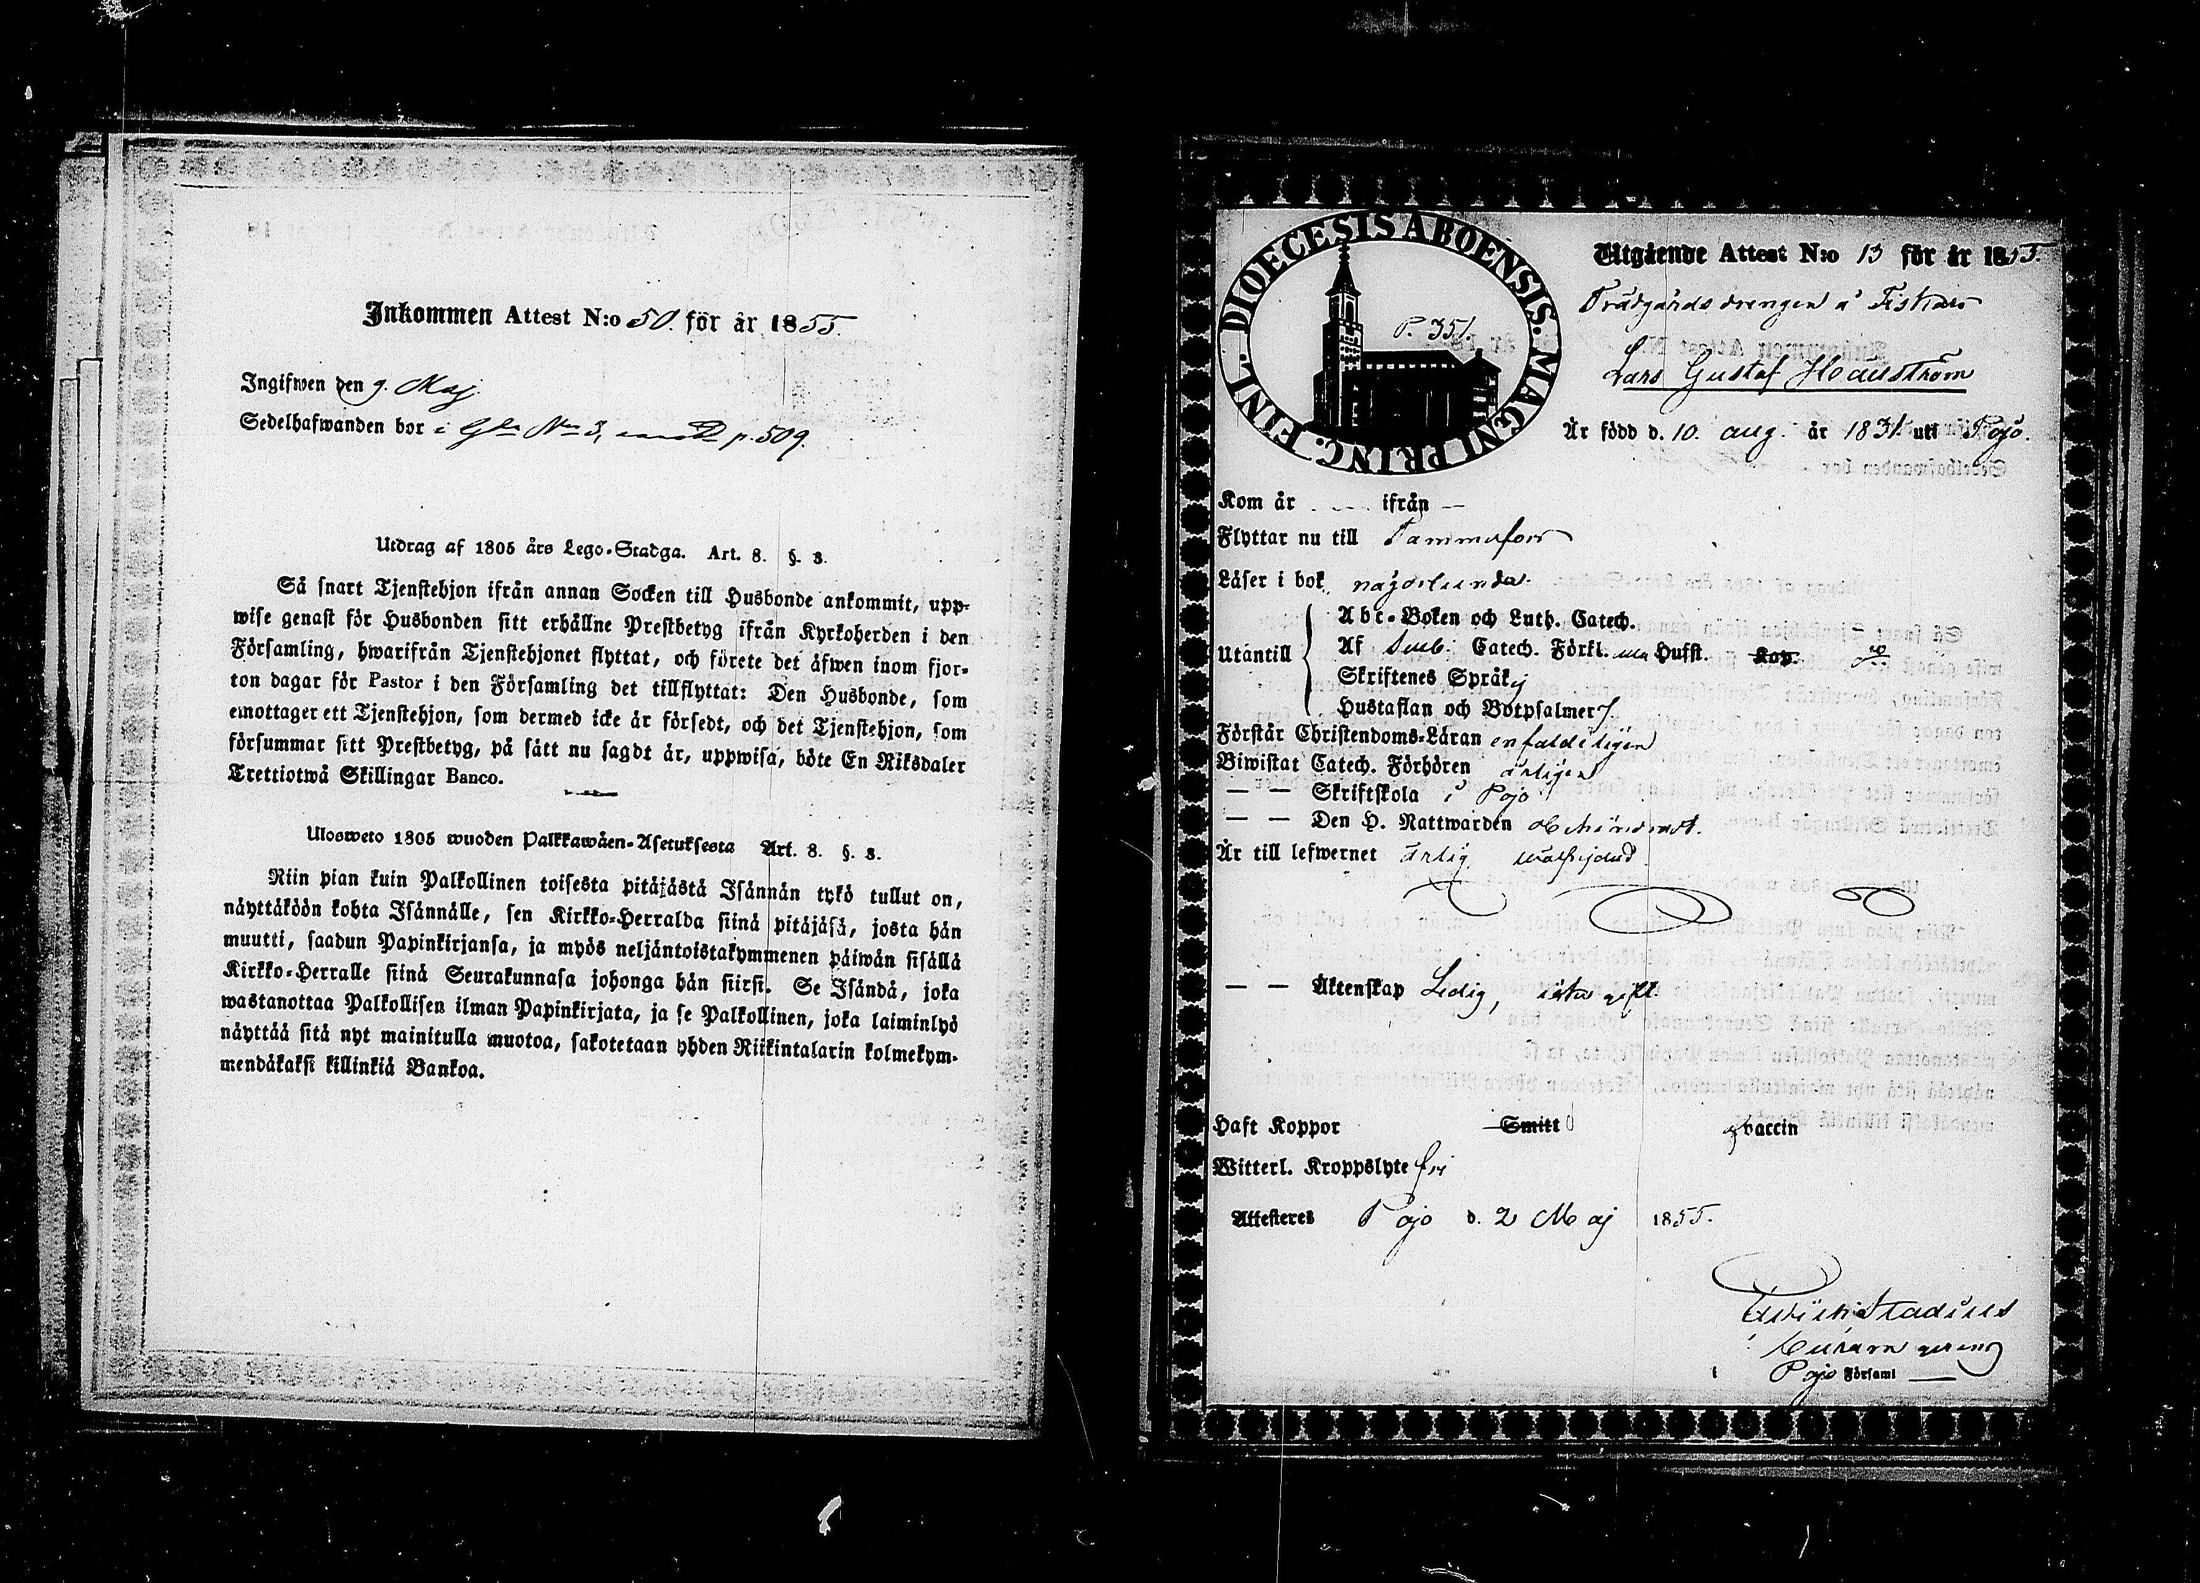 Inkommen Attest N:o 50. för år 1855.
Ingifwen den 9. Maj.
Sedelhafwanden bor i Gln No 3, p. 509.
Utdrag af 1805 års Lego-Stadga. Art. 8. §. 3.
Så snart Tjenstehjon ifrån annan Socken till Husbonde ankommit, upp-
wise genast för Husbonden sitt erhållne Prestbetyg ifrån Kyrkoherden i den
Församling, hwarifrån Tjenstehjonet flyttat, och förete det äfwen inom fjor-
ton dagar för Pastor i den Församling det tillflyttat: Den Husbonde, som
emottager ett Tjenstehjon, som dermed icke är försedt, och det Tjenstehjon, som
försummar sitt Prestbetyg, på sätt nu sagdt är, uppwisa, böte En Riksdaler
Trettiotwå Skillingar Banco.
Ulosweto 1805 wuoden Palkkawäen-Asetuksesta Art. 8. §. 3.
Niin pian kuin Palkollinen toisesta pitäjästä Isännän tykö tullut on,
näyttäköön kohta Isännälle, sen Kirkko-Herralda siinä pitäjäsä, josta hän
muutti, saadun Papinkirjansa, ja myös neljäntoistakymmenen päiwän sisällä
Kirkko-Herralle siinä Seurakunnasa johonga hän siirsi. Se Isändä, joka
wastanottaa Palkollisen ilman Papinkirjata, ja se Palkollinen, joka laiminlyö
näyttää sitä nyt mainitulla muotoa, sakotetaan yhden Riikintalarin kolmekym-
mendäkaksi killinkiä Bankoa.
DIOECESIS ABOENSIS. MAGNI PRINC. FINL.
P. 351.
Utgående Attest N:o 13 för år 1855.
Trädgårdsdrengen å Fiskars
Lars Gustaf Hallström
Är född d. 10. aug. år 1831. uti Pojo.
Kom år — ifrån —
Flyttar nu till Tammerfors
Läser i bok nöjaktligen
Utantill
Abc-Boken och Luth. Catech.
Af Sveb. Catech. Förkl. Husst. Kap.
Skriftenes Språk
Hustaflan och Botpsalmer
Förstår Christendoms-Läran enfaldeligen
Biwistat Catech. Förhören årligen
— — Skriftskola i Pojo
— — Den H. Nattwarden obehindradt.
Är till lefwernet ärlig
— — Äktenskap Ledig, icke gift
Haft Koppor Smitt vaccin
Witterl. Kroppslyte fri
Attesteres Pojo d. 2 Maj 1855.
Stadius
Pojo Församl